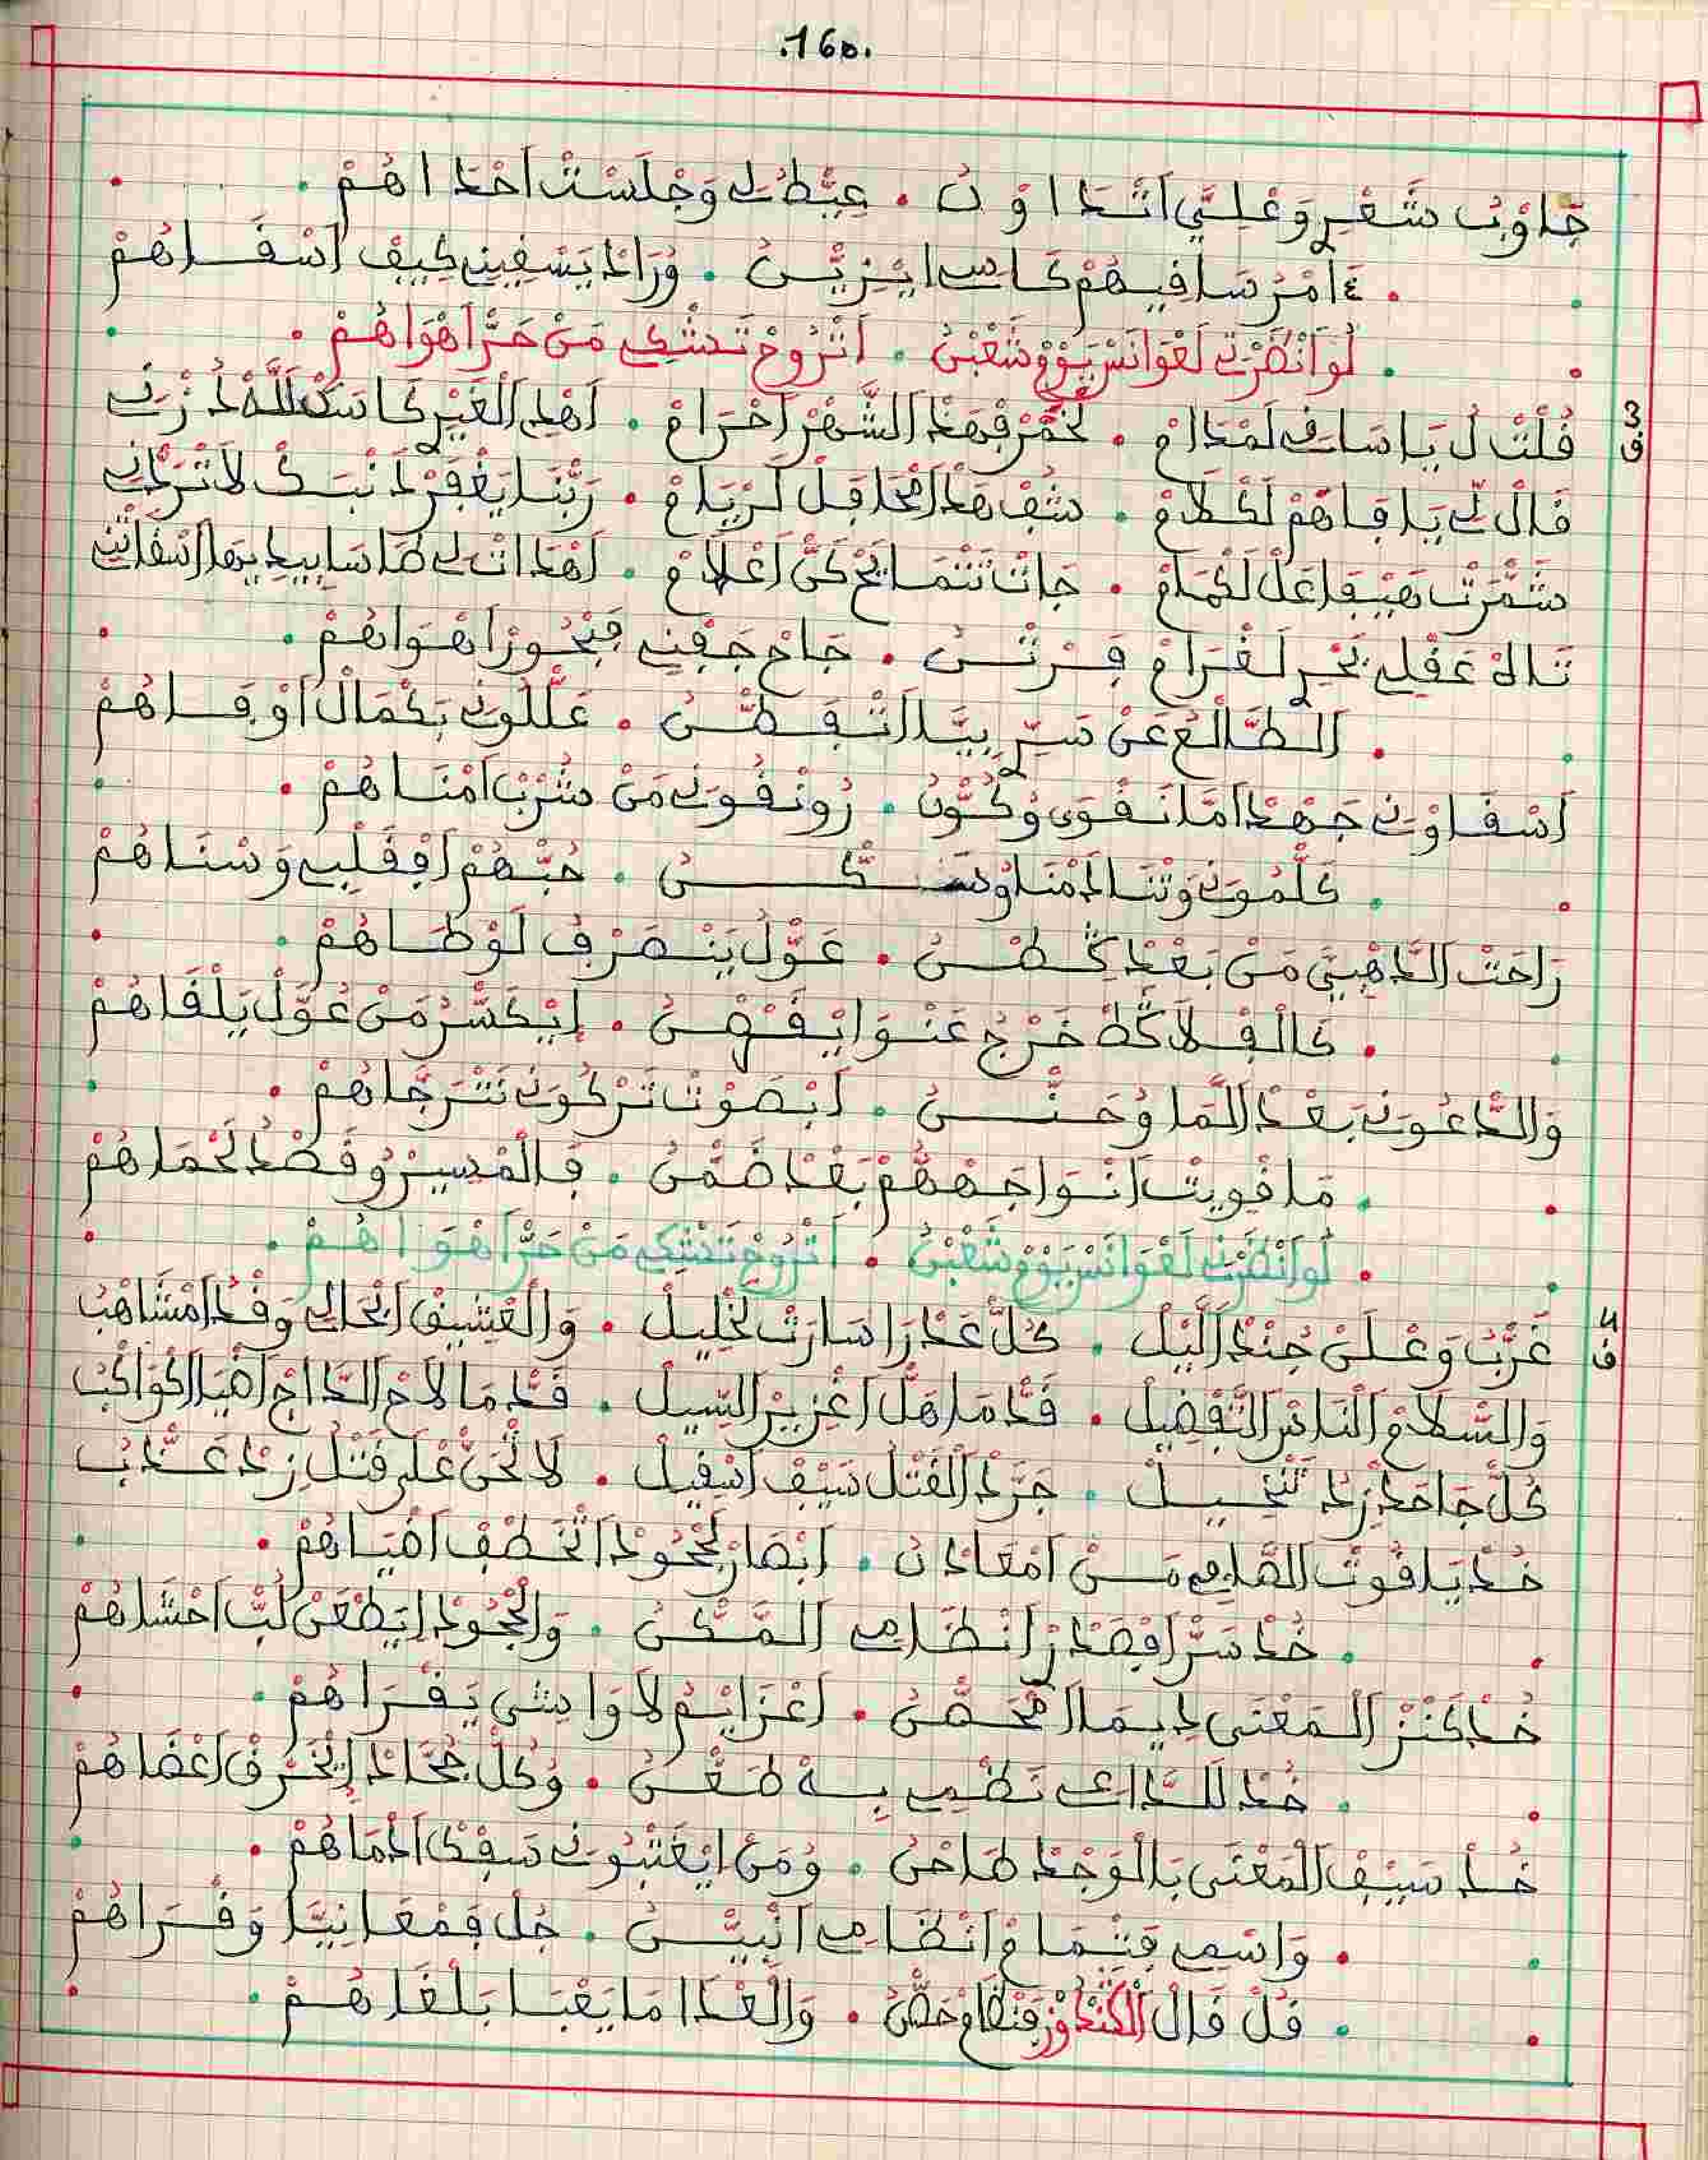 .160.
جَاوْبُ شَعْرِ وَعْلِيَّ اَنْتَدَاوْنُ . عِيَّطْ لِ وَجْلَسْتْ اَحْدَاهُمْ .
. ءَامْرُ سَافِيهُمْ كَاسِ ايْزِيَّنُ . وُرَادْ يَسْفِينِ كِيفْ اَسْفَاهُمْ
. لُو اَنْظَرْتِ لَغْوَانَسْ يُومْ شَعْبْنُ . اَتْرُوحْ تَشْكِ مَنْ حَرّْ اَهْوَاهُمْ .
3 ف
فُلْتْ لُ يَا سَافِ لَمْدَامْ . لَخْمَرْ فِهَذْ الشَّهْرْ اَحْرَامْ . اَهْلِ الْغَيْرِ كَاسَكْ لِلَّهْ لَدْ زْنِ
فَالْ لِي يَا فَاهَمْ لَكْلَامْ . شُفْ هَذْ لَمْحَافِلْ لَرْيَامْ . رَبَّنَا يَغْفِرْ ذَنْبَكْ لَا تَرْدْنِ
شَمَّرْتْ هَيْفَا عَلْ لَكْمَامْ . جَاتْ تَتْمَايَحْ كَنّْ اَعْلَامْ . اَهْدَاتْ لِ طَاسَا بِيدِيهَا اَسْفَاتْنِ
تَاهْ عَفْلِ بَحْرِ لَغْرَامْ فِرْتْنُ . جَاحْ جَفْنِ فَبْحُورْ اَهْوَاهُمْ .
. اَلطَّالْعْ عَنْ سَرِّ بِيَّا اَتْفَطَّنُ . عَلّْلُونِ بَكْمَالْ اَوْفَاهُمْ
اَسْفَاوْنِ جَهْدْ اَمَا نَفْوَى وُكُونُ . رُونْفُونِ مَنْ شُرْبْ اَمْنَاهُمْ .
. كَلّْمُونِ وَتْنَادَمْنَا وُنَسْكُنُ . حُبّْهُمْ اَفْقَلْبِ وَسْنَاهُمْ
رَاحَتْ الذَّهْبِيَّ مَنْ بَعْدْ كُطْنُ . عَوَّلْ يَنْصَرْفْ لَوْطَاهُمْ .
. كَالْفْلَاكْ خْرَجْ عَنْوَا يَفْهْنُ . اِيْكَسَّرْ مَنْ عَوَّلْ يَلْفَاهُمْ
وَالدّْعُونِ بَعْدْ الْمَا وُحَنُّ . اَبْصَوْتْ تَرْكُونِ نَتْرَجَاهُمْ .
. مَا فْوِيتْ اَنْوَاجَهْهُمْ بَعْدْ ضَمْنُ . فَالْمْسِيرْ وُفَصْدْ لَحْمَاهُمْ
. لُو اَنْظَرْتِ لَغْوَانَسْ يُومْ شَعْبْنُ . اَتْرُوحْ تَشْكِ مَنْ حَرّْ اَهْوَاهُمْ .
4 ف
غَرّْبْ وَعْلَنْ جِنْدْ اَلَّيْلْ . كُلّْ عَدْرَا سَارَتْ لَخْلِيلْ . وَالْعْشِيقْ اَبْحَالِي وَفْدْ اَمْشَاهْبُ
وَالسّْلَامْ النَّاسْ التَّفْضِيلْ . فَدّْ مَا هَلّْ اَغْزِيرْ السِّيلْ . فَدّْ مَا لَاحْ الدَّاجْ اَضْيَا اَكْوَاكْبُ
كُلّْ جَاحَدْ زِدْ تَنْخِيلْ . جَرَّدْ الْفَتْلْ سَيْفْ اَسْفِيلْ . لَا تْحَنّْ عْلَى فَتْلُ زِدْ عَدّْبُ
خُدْ يَا فُوتْ الصَّامِي مَنْ اَمْعَادْنُ . اَبْصَارْ لَجْحُودْ اَتْخَطَفْ اَضْيَاهُمْ .
. خُدْ سَرّْ اَفْصَدْرْ اَنْظَامِي اَلْمَكْنُ . وَالْجْحُودْ اِيَطْعَنْ لُبّْ اَحْشَاهُمْ
خُدْ كَنْزْ الْمَعْنَى دِيمَا اَمْحَصّْنُ . اَعْزَايَمْ لَا وَاشِي يَفْرَاهُمْ .
. خُدْ لَلدَّاعِي نَظْمِي بِهْ طَعْنُ . وُكُلّْ جُحَّادْ اِيْخَرْقْ اَعْضَاهُمْ
خُدْ سَيْفْ الْمَعْنَى بَالْوَجْدْ طَاحْنُ . وُمَنْ اِيْغَتْبُونِي سَفْكْ اَدْمَاهُمْ .
. وَاسْمِي فَتْمَامْ اَنْظَامِي اَنْبِيّْنُ . جُلْ فَمْعَانِيَّا وَفْرَاهُمْ
. فُلْ فَالْ الْكَنْدُوزْ فَنْظَامْ حَصّْنُ . وَالْعْدَا مَا يَعْبَا بَلْغَاهُمْ .